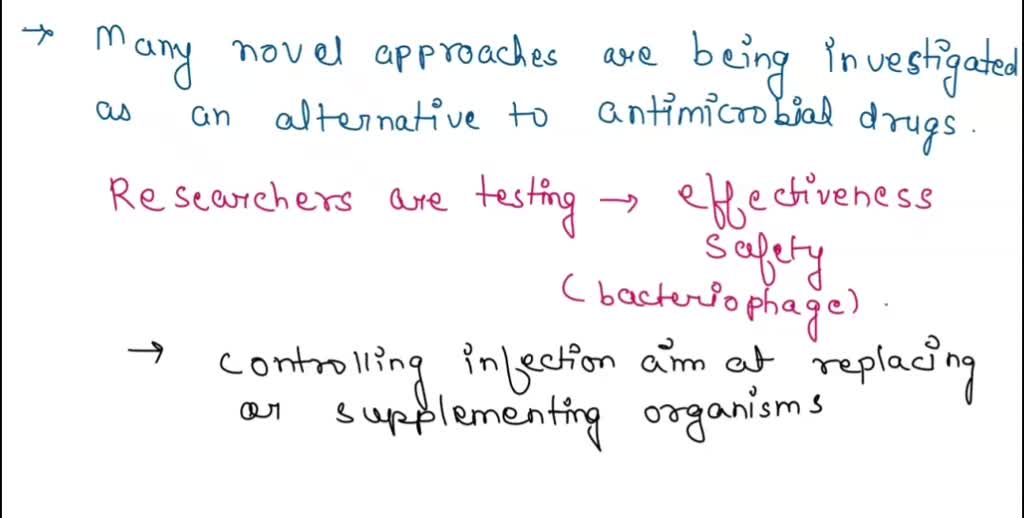 → Many novel approaches are being investigated
as an alternative to antimicrobial drugs.
Researchers are testing → effectiveness
safety
(bacteriophage).
→ controlling infection aim at replacing
or supplementing organisms